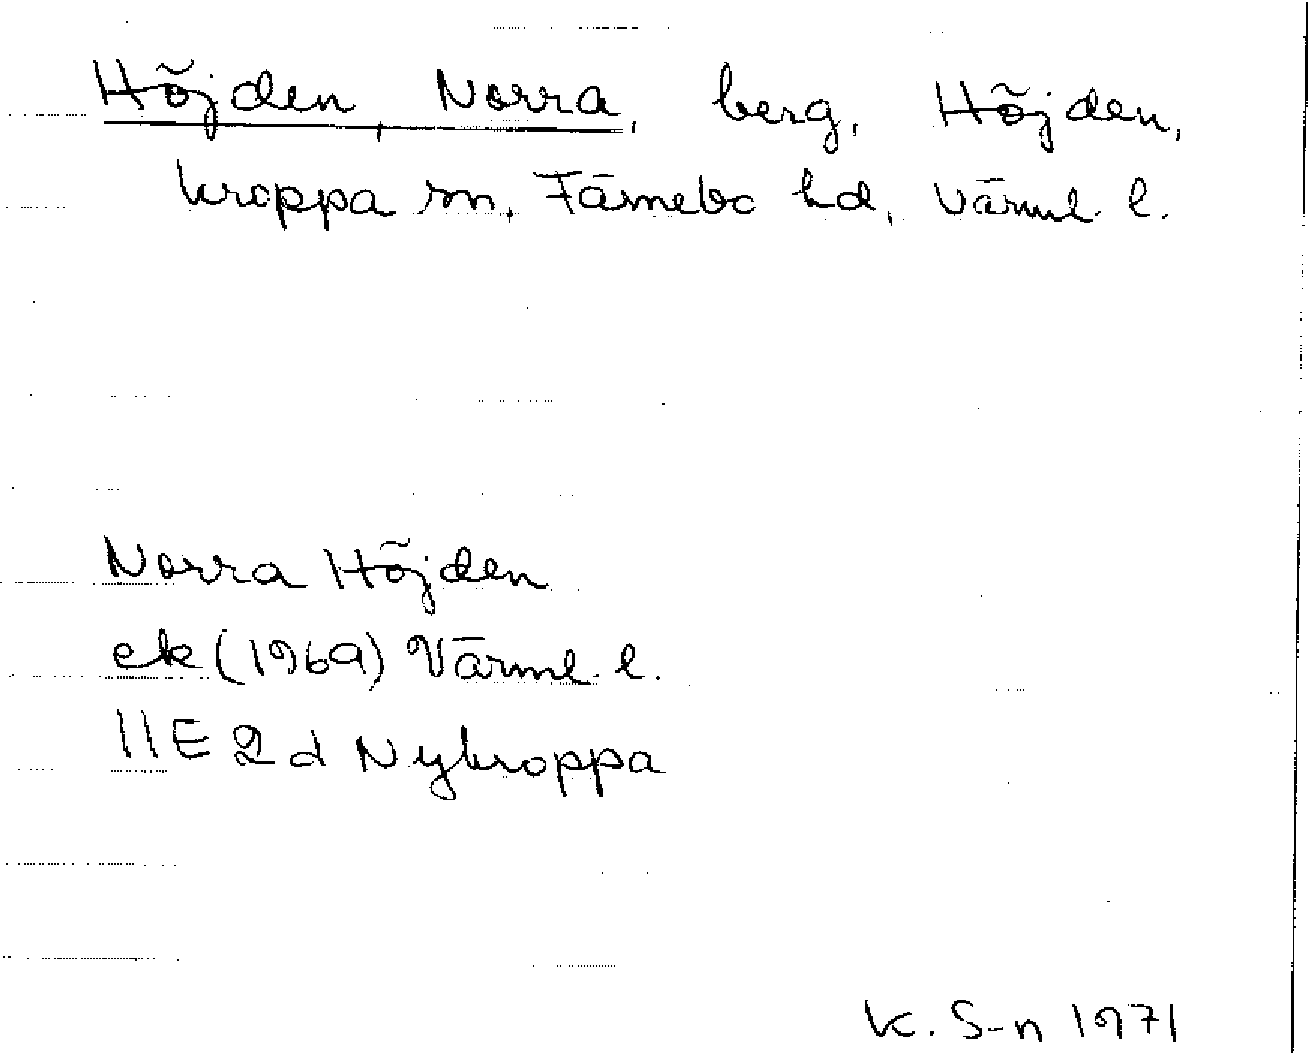 Höjden, Norra, berg, Höjden,
Kroppa sn, Färnebo hd, Värml. l.
Norra Höjden
ek (1969) Värml. l.
11E 2d Nykroppa
K. S-n 1971